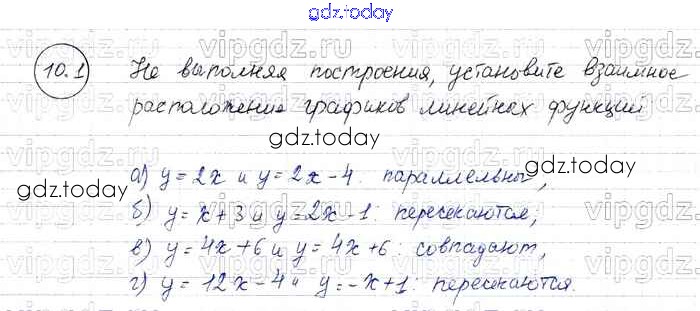 gdz.today
10.1 Не выполняя построения, установите взаимное
расположение графиков линейных функций
а) y = 2x и y = 2x - 4: параллельны,
б) y = x + 3 и y = 2x - 1: пересекаются;
в) y = 4x + 6 и y = 4x + 6: совпадают,
г) y = 12x - 4 и y = -x + 1: пересекаются.
gdz.today
gdz.today
gdz.today
vipgdz.ru